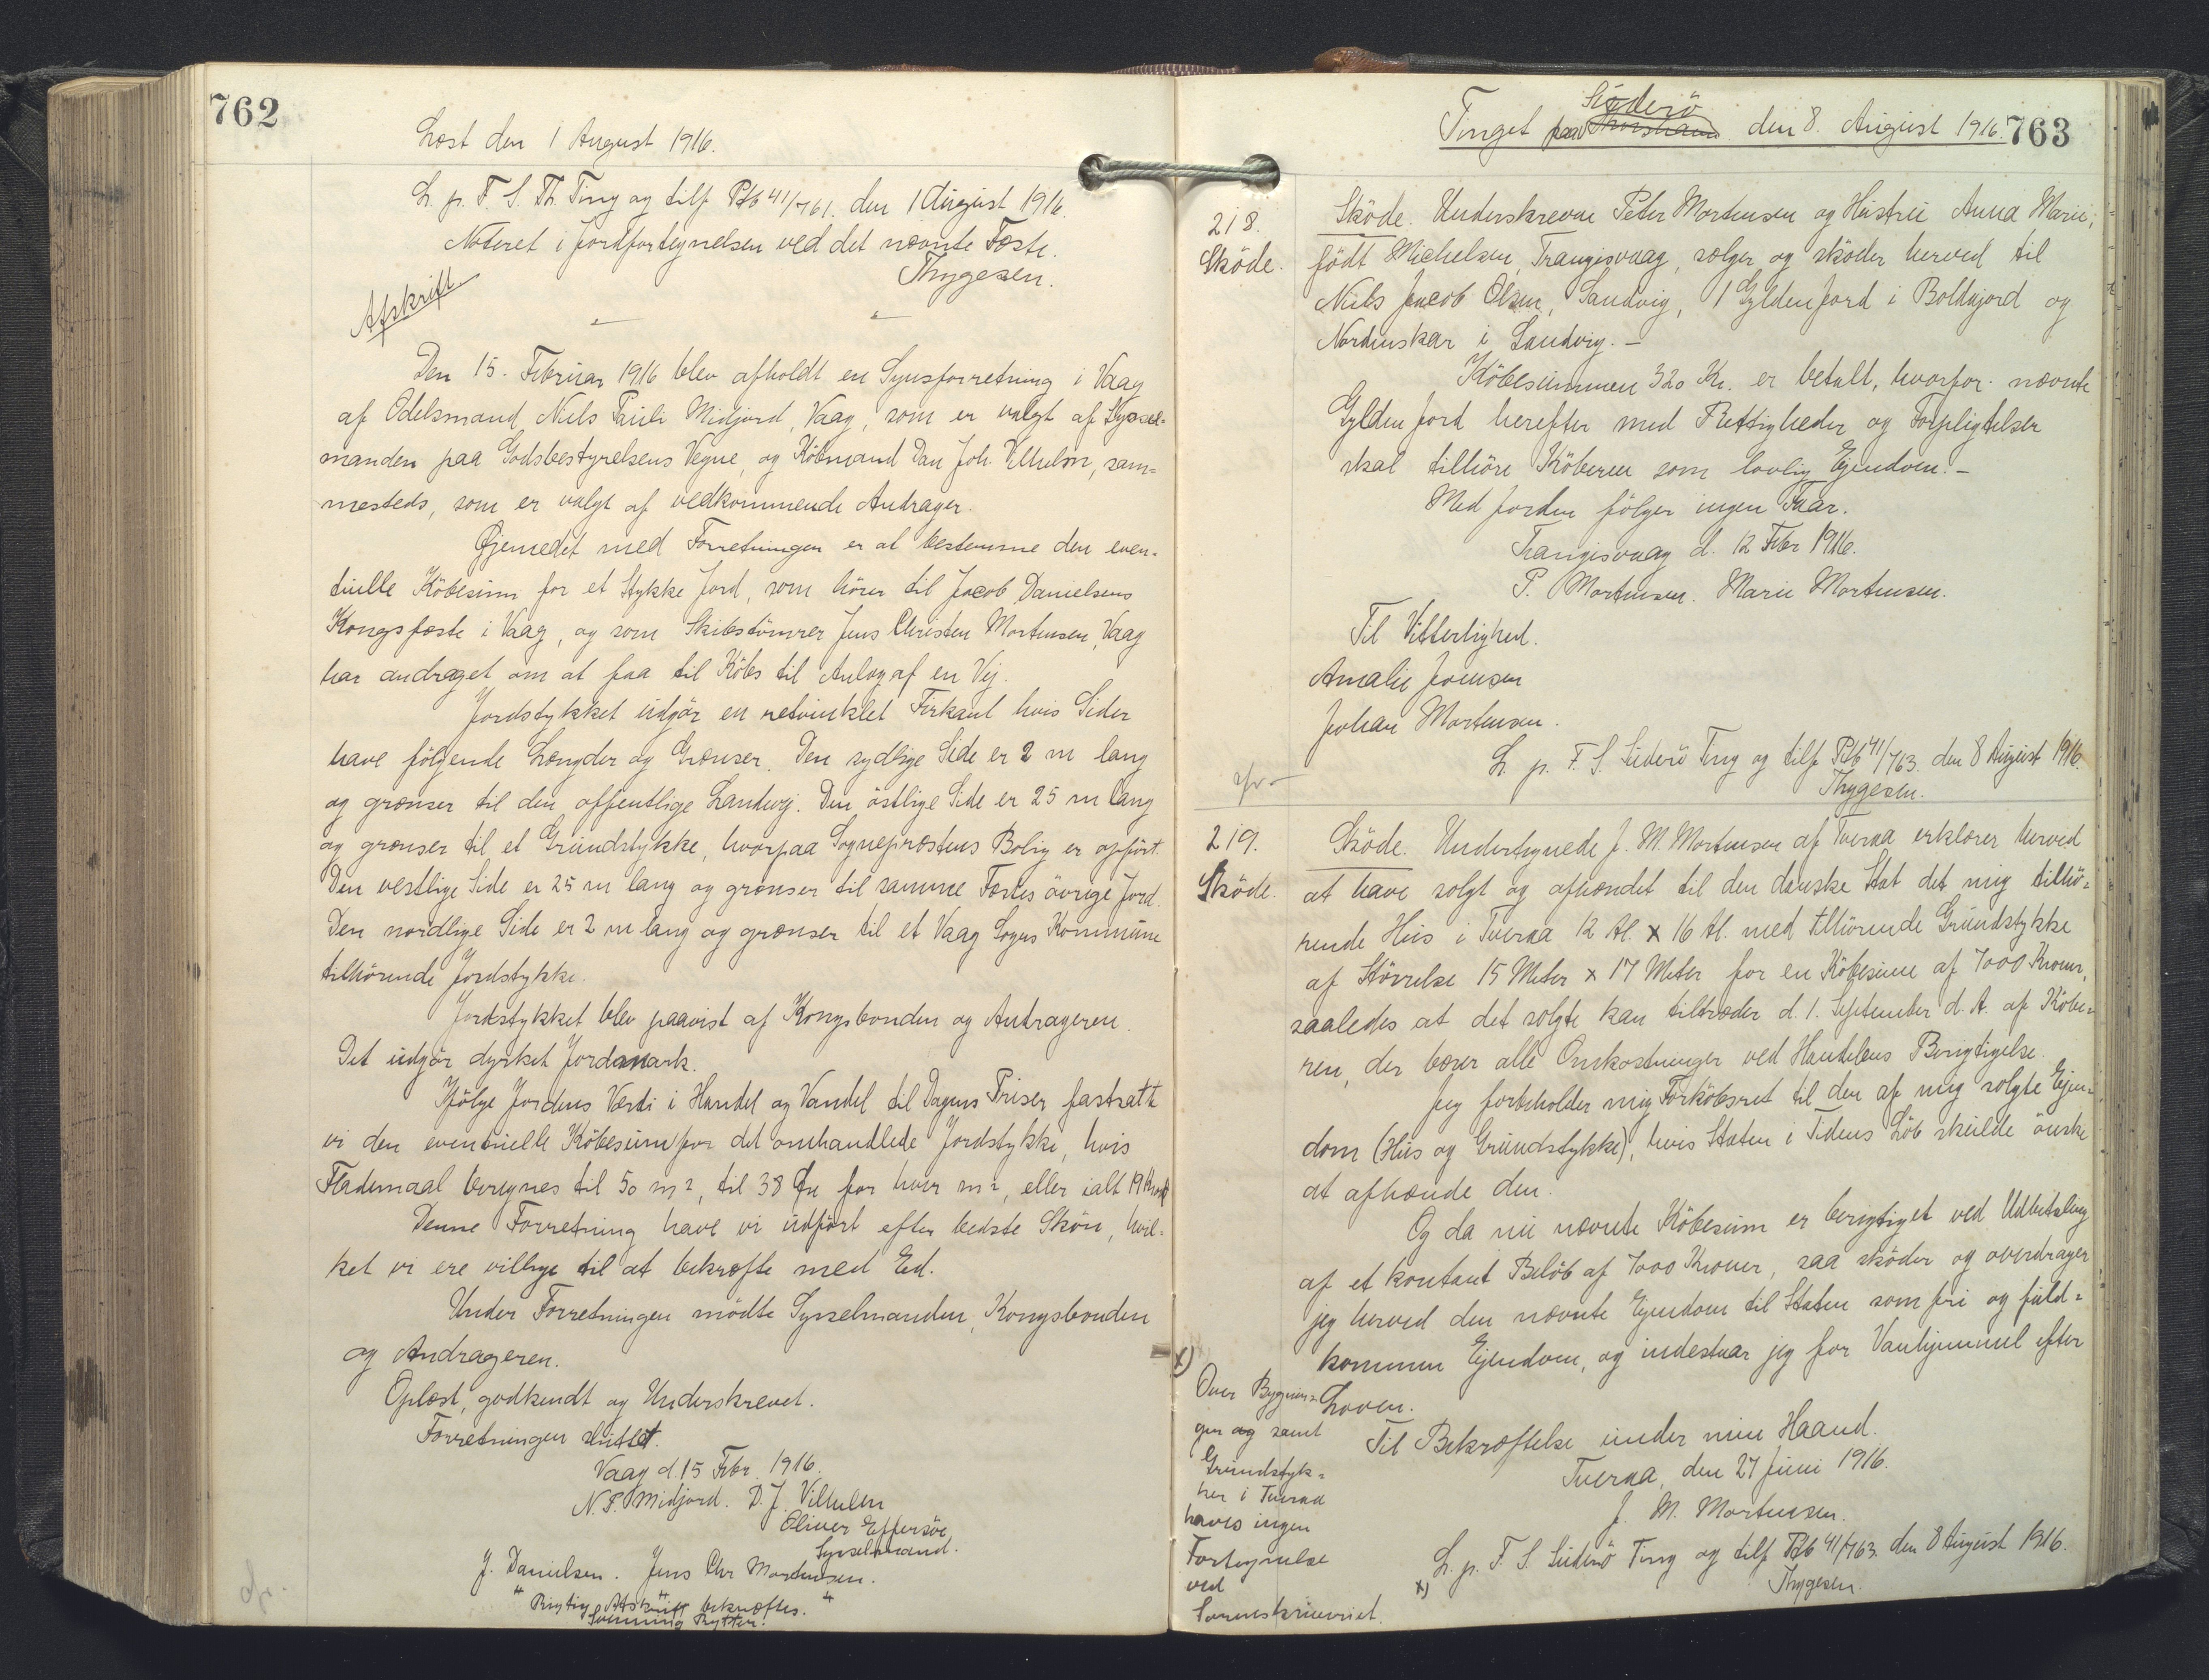 762
Læst den 1 August 1916.
L. p. F. S. Th. Ting og tilf Ptb 41/761. den 1 August 1916.
Noteret i Jordfortegnelsen ved det nævnte Fæste.
Thygesen.
Afskrift
Den 15. Februar 1916 blev afholdt en Synsforretning i Vaag
af Odelsmand Niels Pauli Midjord, Vaag, som er valgt af Syssel=
manden paa Godsbestyrelsens Vegne, og Köbmand Dan Joh. Vilhelm, sam=
mesteds, som er valgt af vedkommende Andrager.
Øjemedet med Forretningen er at bestemme den even-
tuelle Köbesum for et Stykke Jord, som hörer til Jacob Danielsens
Kongsfæste i Vaag, og som Skibstömrer Jens Christen Mortensen, Vaag
har andraget om at faa til Köbs til Anlæg af en Vej.
Jordstykket udgör en retvinklet Firkant hvis Sider
have följende Længder og Grænser. Den sydlige Side er 2 m lang
og grænser til den offentlige Landevej. Den östlige Side er 25 m lang
og grænser til et Grundstykke, hvorpaa Sognepræstens Bolig er opfört.
Den vestlige Side er 25 m lang og grænser til samme Fæstes övrige Jord.
Den nordlige Side er 2 m lang og grænser til et Vaag Sogns Kommune
tilhörende Jordstykke.
Jordstykket blev paavist af Kongsbonden og Andrageren.
Det udgör dyrket Jordmark.
Ifölge Jordens Værdi i Handel og Vandel til Dagens Priser fastsatte
vi den eventuelle Köbesum for det omhandlede Jordstykke, hvis
Flademaal beregnes til 50 m², til 38 Øre for hver m², eller ialt 19 Kroner
Denne Forretning have vi udfört efter bedste Skön, hvil=
ket vi ere villige til at bekræfte med Ed.
Under Forretningen mödte Sysselmanden, Kongsbonden
og Andrageren.
Oplæst, godkendt og Underskrevet.
Forretningen sluttet.
Vaag d. 15 Febr. 1916.
N. P. Midjord. D. J. Vilhelm
Oliver Effersöe,
Sysselmand.
J. Danielsen. Jens Chr Mortensen.
" Rigtig Afskrift bekræftes. "
Rytter.
763
Suderö
Tinget paa Thorshavn den 8. August 1916.
218.
Sköde.
Sköde. Underskrevne Peter Mortensen og Hustru Anna Marie,
födt Michelsen, Trangisvaag, sælger og sköder herved til
Niels Jacob Olsen, Sandvig, 1 Gylden Jord i Boldegjord og
Nordenskar i Sandvig. —
Köbesummen 320 Kr. er betalt, hvorfor nævnte
Gylden Jord herefter med Rettigheder og Forpligtelser
skal tilhöre Köberen som lovlig Ejendom. —
Med Jorden fölger ingen Faar.
Trangisvaag d. 12 Febr 1916.
P. Mortensen. Marie Mortensen.
Til Vitterlighed.
Amalie Joensen
Johan Mortensen.
L. p. F. S. Suderö Ting og tilf Ptb 41/763. den 8 August 1916.
Thygesen.
219.
Sköde.
Sköde. Undertegnede J. M. Mortensen af Tveraa erklærer herved
at have solgt og afhændet til den danske Stat det mig tilhö=
rende Hus i Tveraa 12 Al. x 16 Al. med tilhörende Grundstykke
af Störrelse 15 Meter x 17 Meter for en Köbesum af 7000 Kroner,
saaledes at det solgte kan tiltræder d. 1. September d. A. af Köbe=
ren, der bærer alle Omkostninger ved Handelens Berigtigelse.
Jeg forbeholder mig Forköbsret til den af mig solgte Ejen=
dom (Hus og Grundstykke), hvis Staten i Tidens Löb skulde önske
at afhænde den.
Og da nu nævnte Köbesum er berigtiget ved Udbetaling
af et kontant Belöb af 7000 Kroner, saa sköder og overdrager
jeg herved den nævnte Ejendom til Staten som fri og fuld=
kommen Ejendom, og indestaar jeg for Vanhjemmel efter
Loven.
Til Bekræftelse under min Haand.
Tveraa, den 27 Juni 1916.
J. M. Mortensen.
L. p. F. S. Suderö Ting og tilf Ptb 41/763. den 8 August 1916.
x)
Thygesen.
x)
Over Bygnin=
ger og samt
Grundstyk=
ker i Tveraa
haves ingen
Fortegnelse
ved
Sorenskriveriet.